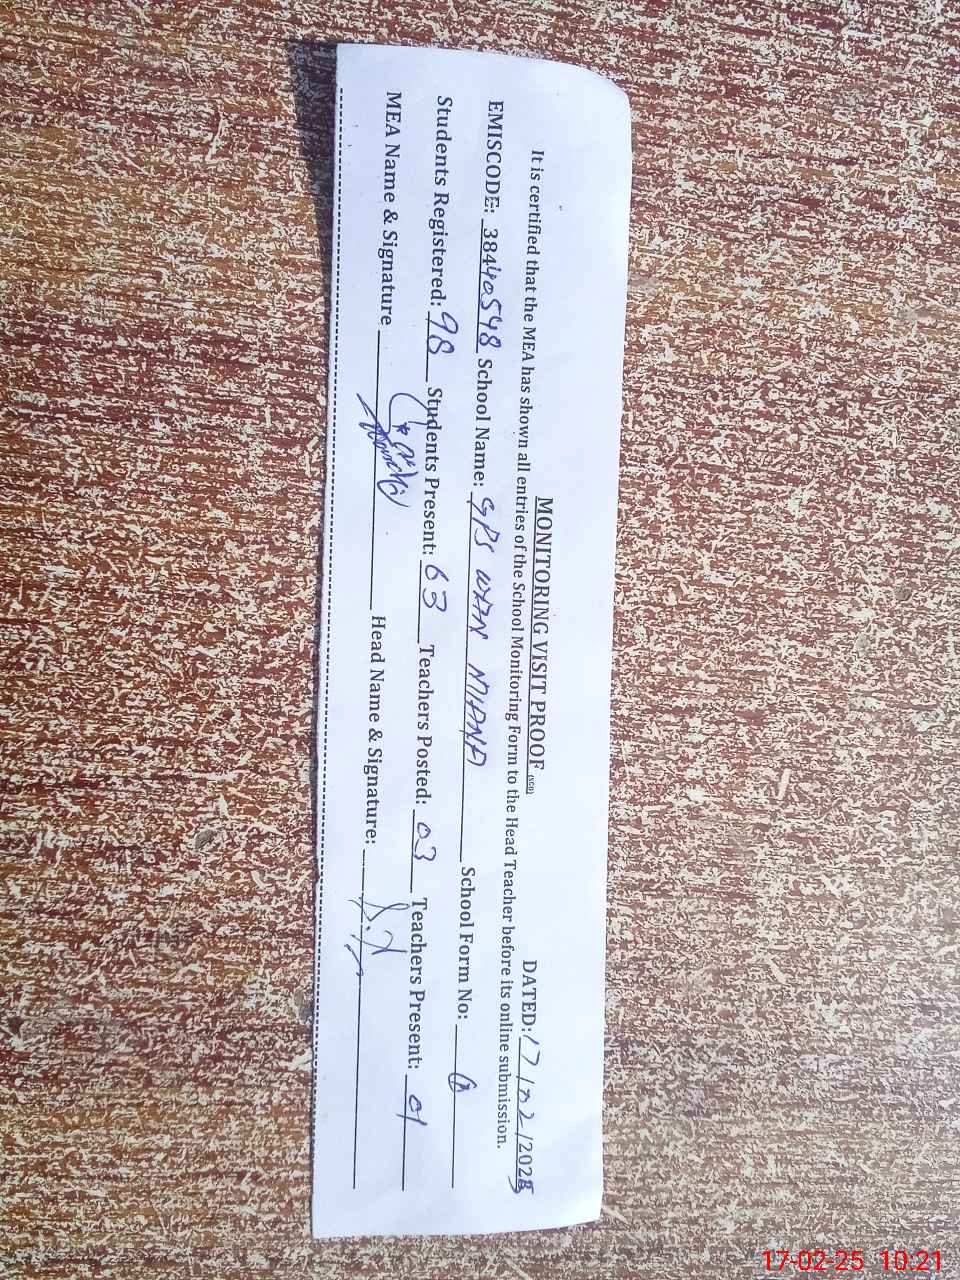 MONITORING VISIT PROOF
DATED: 17/02/2025
It is certified that the MEA has shown all entries of the School Monitoring Form to the Head Teacher before its online submission.
EMISCODE: 38440548 School Name: GPS WAN MIANA School Form No:
Students Registered: 98 Students Present: 63 Teachers Posted: 03 Teachers Present: 01
MEA Name & Signature Head Name & Signature:
17-02-25 10:21